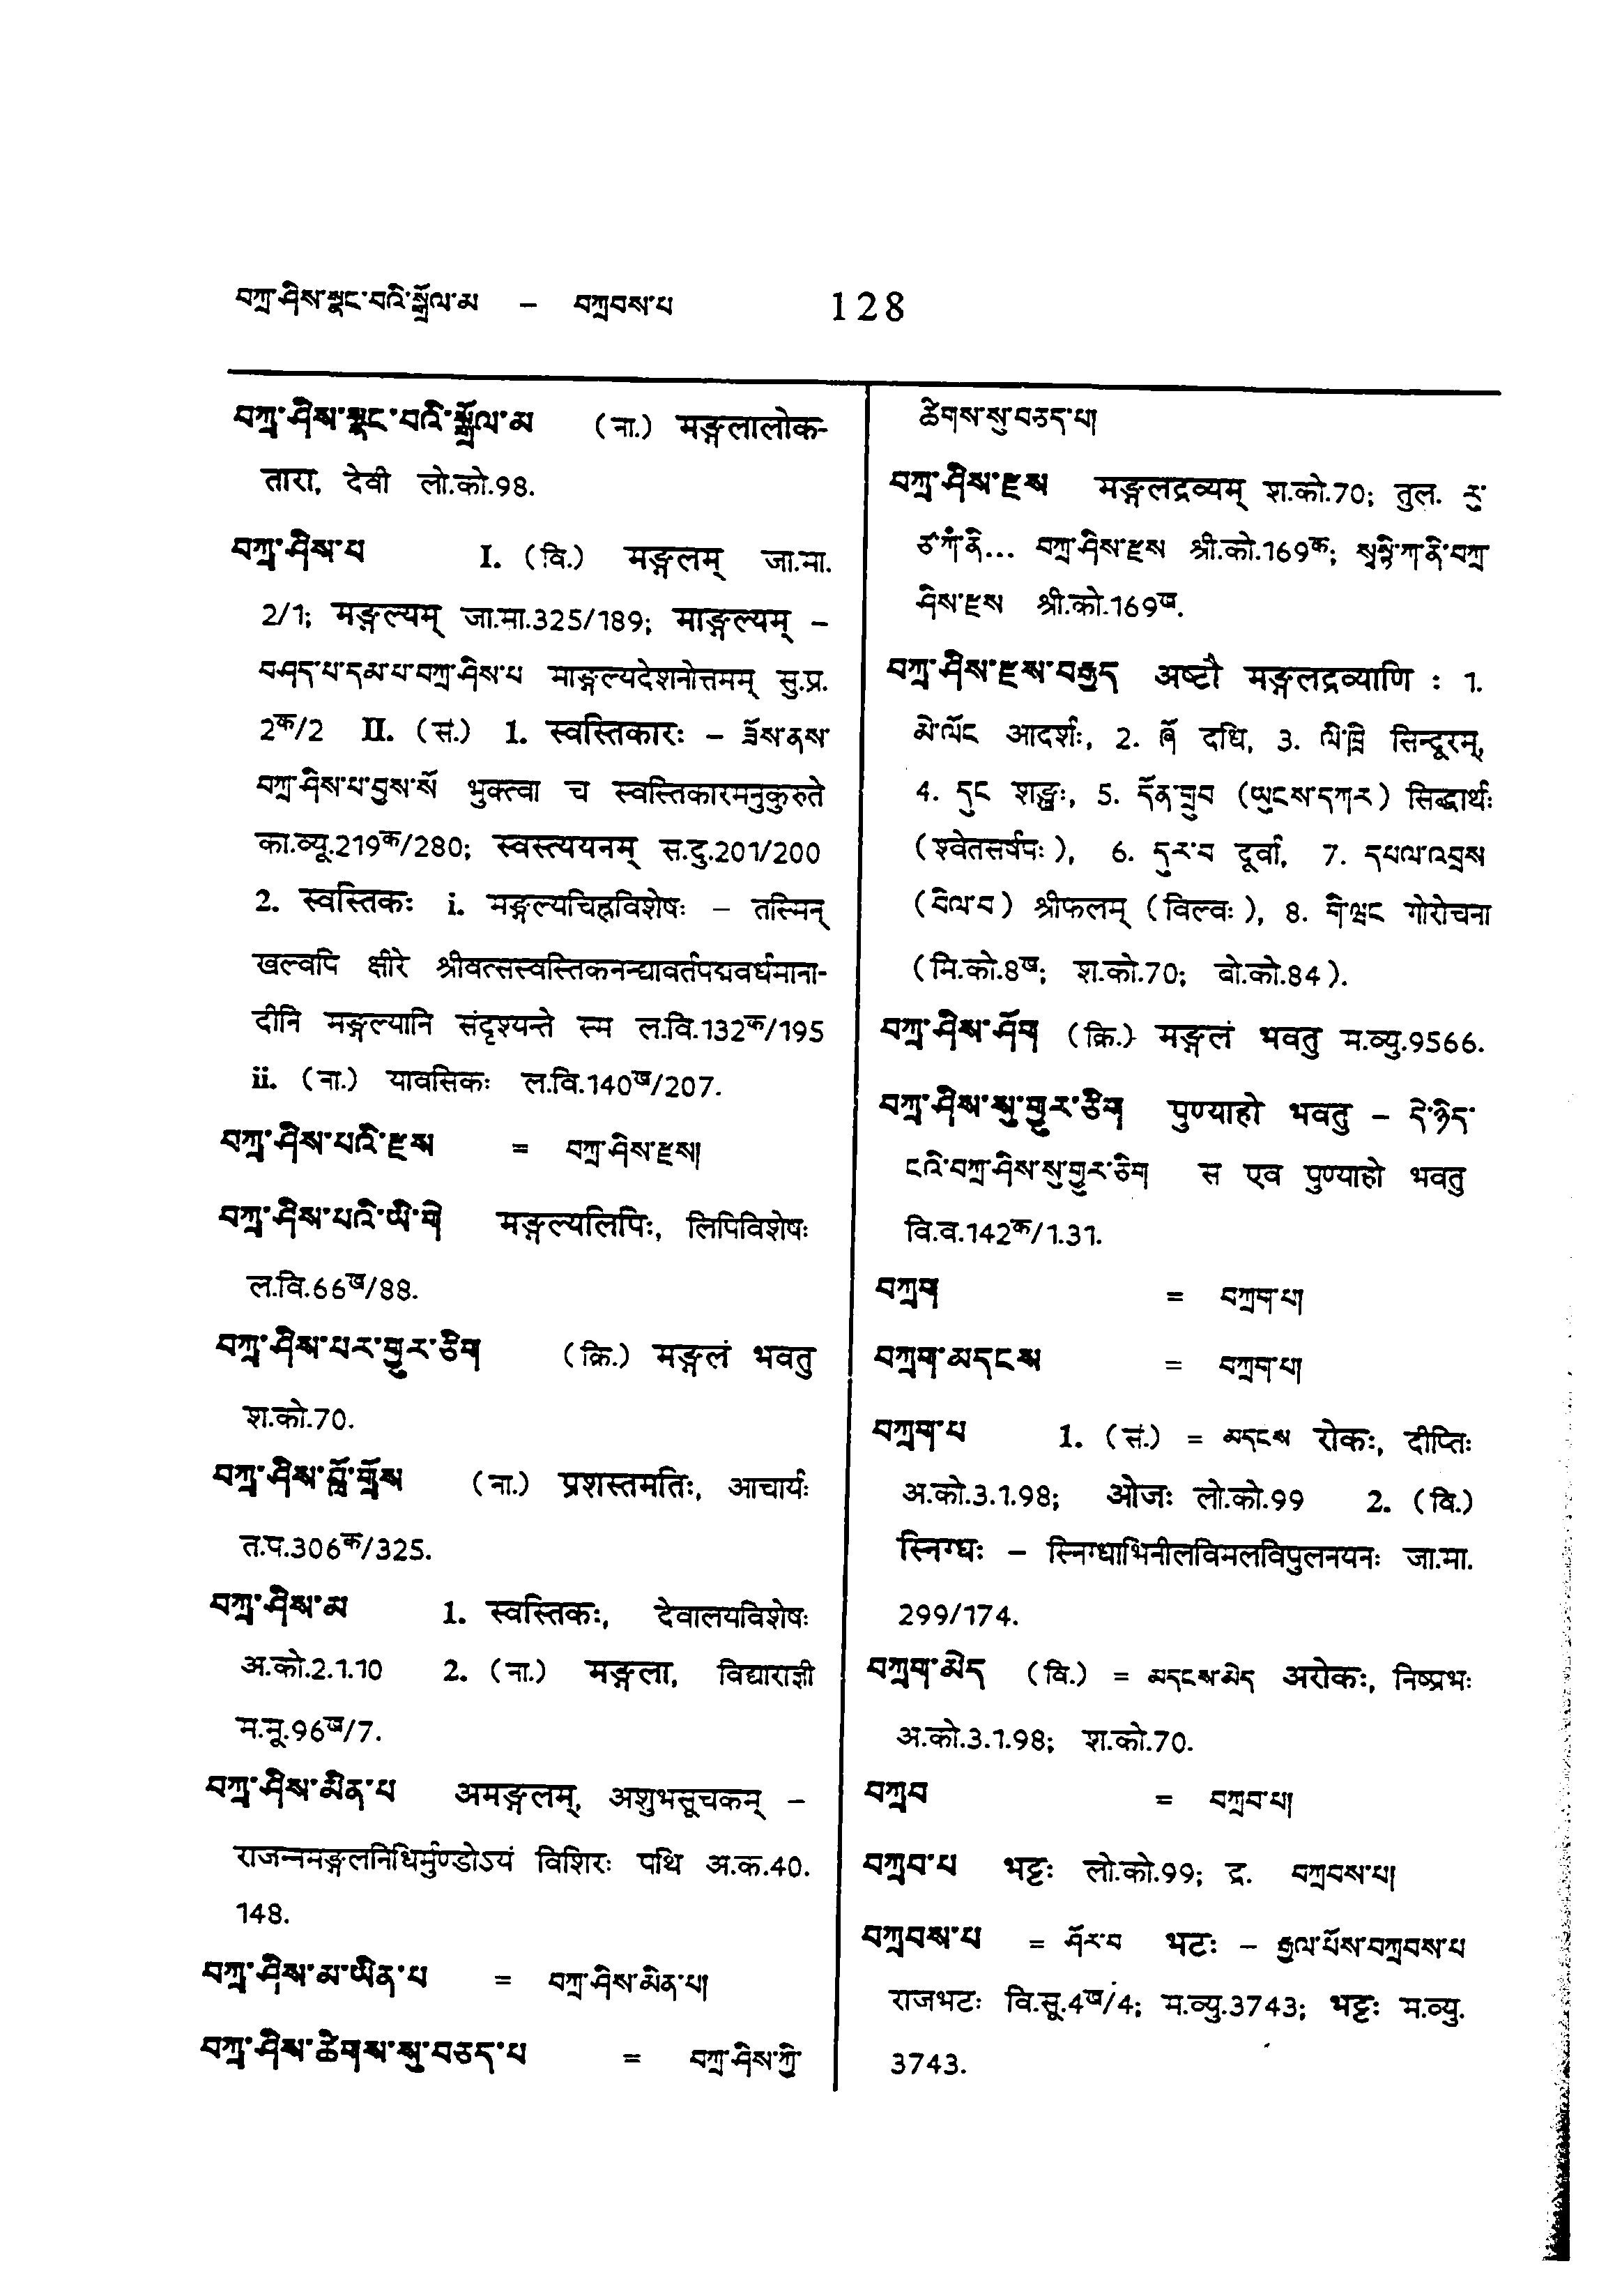 བཀྲ་ཤིས་སྣང་བའི་སྒྲོལ་མ – བཀྲབས་པ 128
བཀྲ་ཤིས་སྣང་བའི་སྒྲོལ་མ (ना.) मङ्गलालोक-
तारा, देवी लो.को.98.
བཀྲ་ཤིས་པ I. (वि.) मङ्गलम् जा.मा.
2/1; मङ्गल्यम् जा.मा.325/189; माङ्गल्यम् –
བཤད་པ་དམ་པ་བཀྲ་ཤིས་པ माङ्गल्यदेशनोत्तमम् सु.प्र.
2क/2 II. (सं.) 1. स्वस्तिकारः – ཟོས་ནས་
བཀྲ་ཤིས་པ་བྱས་སོ भुक्त्वा च स्वस्तिकारमनुकुरुते
का.व्यू.219क/280; स्वस्त्ययनम् स.दु.201/200
2. स्वस्तिकः i. मङ्गल्यचिह्नविशेषः – तस्मिन्
खल्वपि क्षीरे श्रीवत्सस्वस्तिकनन्द्यावर्तपद्मवर्धमाना-
दीनि मङ्गल्यानि संदृश्यन्ते स्म ल.वि.132क/195
ii. (ना.) यावसिकः ल.वि.140ख/207.
བཀྲ་ཤིས་པའི་རྫས = བཀྲ་ཤིས་རྫས།
བཀྲ་ཤིས་པའི་ཡི་གེ मङ्गल्यलिपिः, लिपिविशेषः
ल.वि.66ख/88.
བཀྲ་ཤིས་པར་གྱུར་ཅིག (क्रि.) मङ्गलं भवतु
श.को.70.
བཀྲ་ཤིས་བློ་གྲོས (ना.) प्रशस्तमतिः, आचार्यः
त.प.306क/325.
བཀྲ་ཤིས་མ 1. स्वस्तिकः, देवालयविशेषः
अ.को.2.1.10 2. (ना.) मङ्गला, विद्याराज्ञी
म.मू.96ख/7.
བཀྲ་ཤིས་མིན་པ अमङ्गलम्, अशुभसूचकम् –
राजन्नमङ्गलनिधिर्मुण्डोऽयं विशिरः पथि अ.क.40.
148.
བཀྲ་ཤིས་མ་ཡིན་པ = བཀྲ་ཤིས་མིན་པ།
བཀྲ་ཤིས་ཚེགས་སུ་བཅད་པ = བཀྲ་ཤིས་ཀྱི་
ཚེགས་སུ་བཅད་པ།
བཀྲ་ཤིས་རྫས मङ्गलद्रव्यम् श.को.70; तुल. རུ་
ཙ་ཀཾ་ནི... བཀྲ་ཤིས་རྫས श्री.को.169क; སྭསྟི་ཀ་ནི་བཀྲ་
ཤིས་རྫས श्री.को.169ख.
བཀྲ་ཤིས་རྫས་བརྒྱད अष्टौ मङ्गलद्रव्याणि : 1.
མེ་ལོང आदर्शः, 2. ཞོ दधि, 3. ལི་ཁྲི सिन्दूरम्,
4. དུང शङ्खः, 5. དོན་གྲུབ (ཡུངས་དཀར) सिद्धार्थः
(श्वेतसर्षपः), 6. དུར་བ दूर्वा, 7. དཔལ་འབྲས
(བིལ་བ) श्रीफलम् (विल्वः), 8. གི་ཝང गोरोचना
(मि.को.8ख; श.को.70; बो.को.84).
བཀྲ་ཤིས་ཤོག (क्रि.) मङ्गलं भवतु म.व्यु.9566.
བཀྲ་ཤིས་སུ་གྱུར་ཅིག पुण्याहो भवतु – དེ་ཉིད་
ངའི་བཀྲ་ཤིས་སུ་གྱུར་ཅིག स एव पुण्याहो भवतु
वि.व.142क/1.31.
བཀྲག = བཀྲག་པ།
བཀྲག་མདངས = བཀྲག་པ།
བཀྲག་པ 1. (सं.) = མདངས रोकः, दीप्तिः
अ.को.3.1.98; ओजः लो.को.99 2. (वि.)
स्निग्धः – स्निग्धाभिनीलविमलविपुलनयनः जा.मा.
299/174.
བཀྲག་མེད (वि.) = མདངས་མེད अरोकः, निष्प्रभः
अ.को.3.1.98; श.को.70.
བཀྲབ = བཀྲབ་པ།
བཀྲབ་པ भट्टः लो.को.99; द्र. བཀྲབས་པ།
བཀྲབས་པ = ཤོར་བ भटः – རྒྱལ་པོས་བཀྲབས་པ
राजभटः वि.सू.4ख/4; म.व्यु.3743; भट्टः म.व्यु.
3743.